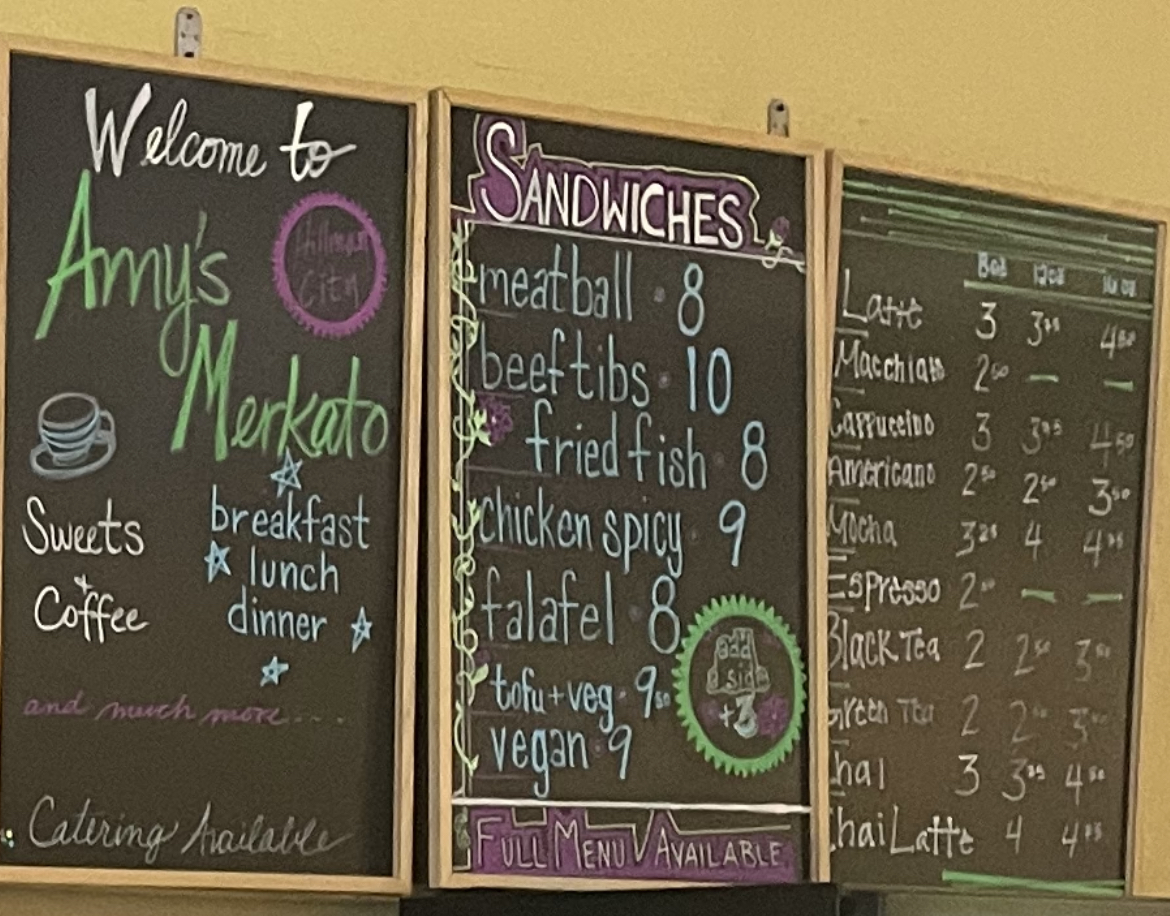 Welcome to
Amy's
Merkato
Hillman
City
Sweets
+
Coffee
breakfast
lunch
dinner
and much more....
Catering Available
SANDWICHES
meatball · 8
beef tibs · 10
fried fish · 8
chicken spicy · 9
falafel · 8
tofu + veg · 9 50
vegan · 9
add
side
+3
FULL MENU AVAILABLE
8oz 12oz 16oz
Latte 3 4 50
Macchiato 2 50 — —
Cappuccino 3 4 50
Americano 2 50 2 50 3 50
Mocha 4
Espresso 2 — —
Black Tea 2 2 50 3
Green Tea 2 2 3
Chai 3 4 50
Chai Latte 4